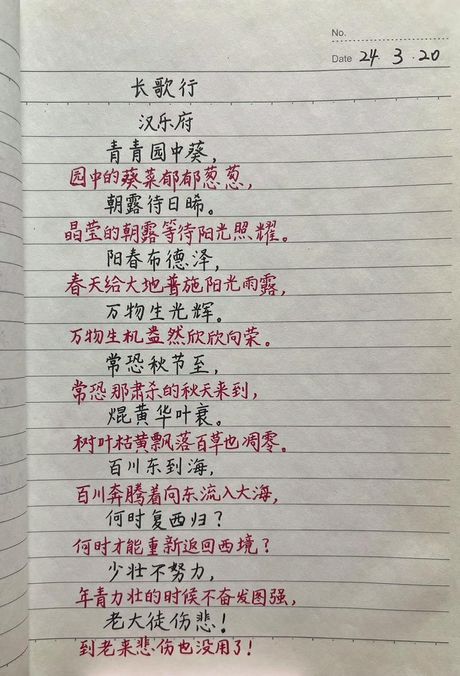 No.
Date 24. 3. 20
长歌行
汉乐府
青青园中葵，
园中的葵菜郁郁葱葱，
朝露待日晞。
晶莹的朝露等待阳光照耀。
阳春布德泽，
春天给大地普施阳光雨露，
万物生光辉。
万物生机盎然欣欣向荣。
常恐秋节至，
常恐那肃杀的秋天来到，
焜黄华叶衰。
树叶枯黄飘落百草也凋零。
百川东到海，
百川奔腾着向东流入大海，
何时复西归？
何时才能重新返回西境？
少壮不努力，
年青力壮的时候不奋发图强，
老大徒伤悲！
到老来悲伤也没用了！